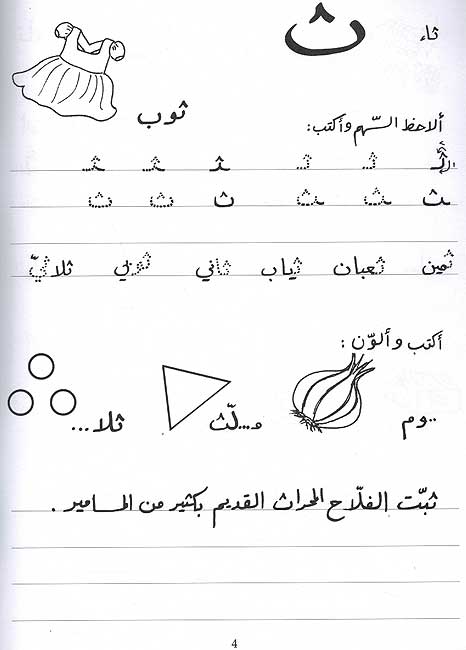 ث ثاء
ثوب
ألاحظ السّهم وأكتب:
ثـ ثـ ثـ ثـ ثـ ثـ
ث ث ث ث ث ث
ثمين ثعبان ثياب ثاني ثوبي ثلاثيّ
أكتب وألوّن:
..وم مـ...لّث ثلا...
ثبّت الفلّاح المحراث القديم بكثير من المسامير.
4